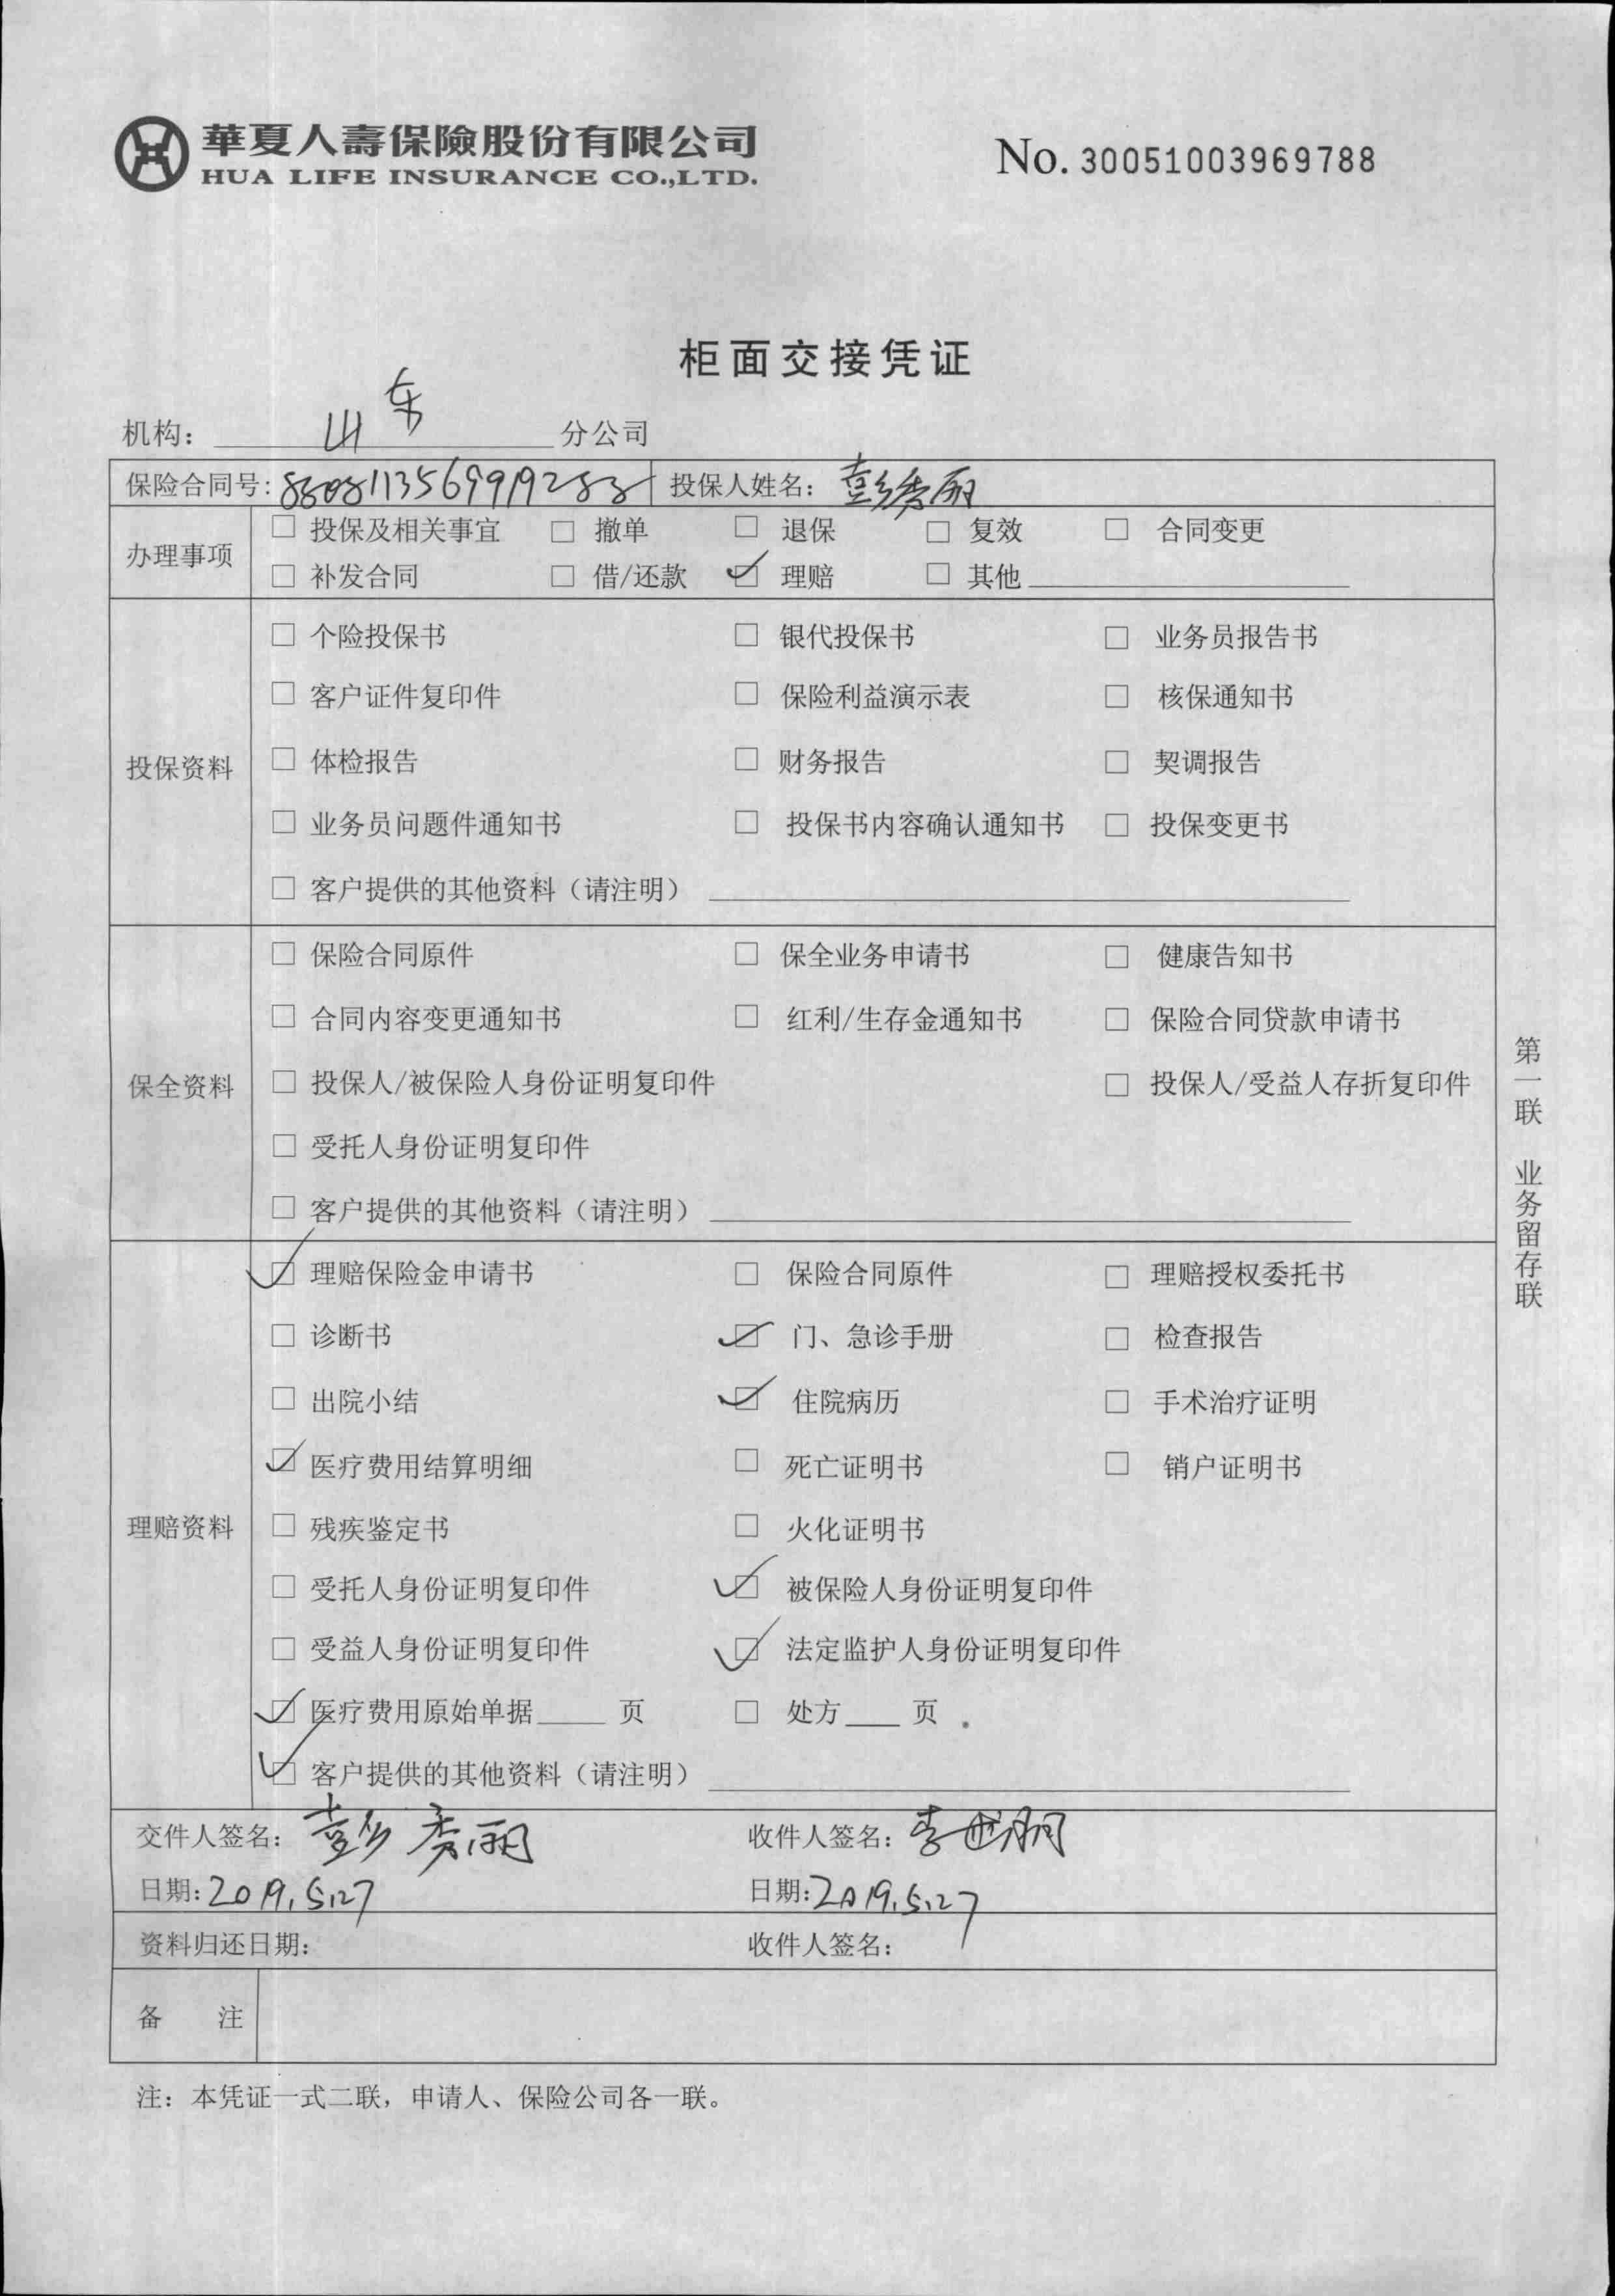 華夏人壽保險股份有限公司
HUA LIFE INSURANCE CO.,LTD.
No. 30051003969788
柜面交接凭证
机构： 山东 分公司
保险合同号： 投保人姓名：彭秀丽
办理事项
□ 投保及相关事宜 □ 撤单 □ 退保 □ 复效 □ 合同变更
□ 补发合同 □ 借/还款 ☑ 理赔 □ 其他
投保资料
□ 个险投保书 □ 银代投保书 □ 业务员报告书
□ 客户证件复印件 □ 保险利益演示表 □ 核保通知书
□ 体检报告 □ 财务报告 □ 契调报告
□ 业务员问题件通知书 □ 投保书内容确认通知书 □ 投保变更书
□ 客户提供的其他资料（请注明）
保全资料
□ 保险合同原件 □ 保全业务申请书 □ 健康告知书
□ 合同内容变更通知书 □ 红利/生存金通知书 □ 保险合同贷款申请书
□ 投保人/被保险人身份证明复印件 □ 投保人/受益人存折复印件
□ 受托人身份证明复印件
□ 客户提供的其他资料（请注明）
理赔资料
☑ 理赔保险金申请书 □ 保险合同原件 □ 理赔授权委托书
□ 诊断书 ☑ 门、急诊手册 □ 检查报告
□ 出院小结 ☑ 住院病历 □ 手术治疗证明
☑ 医疗费用结算明细 □ 死亡证明书 □ 销户证明书
□ 残疾鉴定书 □ 火化证明书
□ 受托人身份证明复印件 ☑ 被保险人身份证明复印件
□ 受益人身份证明复印件 ☑ 法定监护人身份证明复印件
☑ 医疗费用原始单据 页 □ 处方 页
☑ 客户提供的其他资料（请注明）
交件人签名：彭秀丽 收件人签名：李世朋
日期：2019.5.27 日期：2019.5.27
资料归还日期： 收件人签名：
备 注
注：本凭证一式二联，申请人、保险公司各一联。
第一联 业务留存联